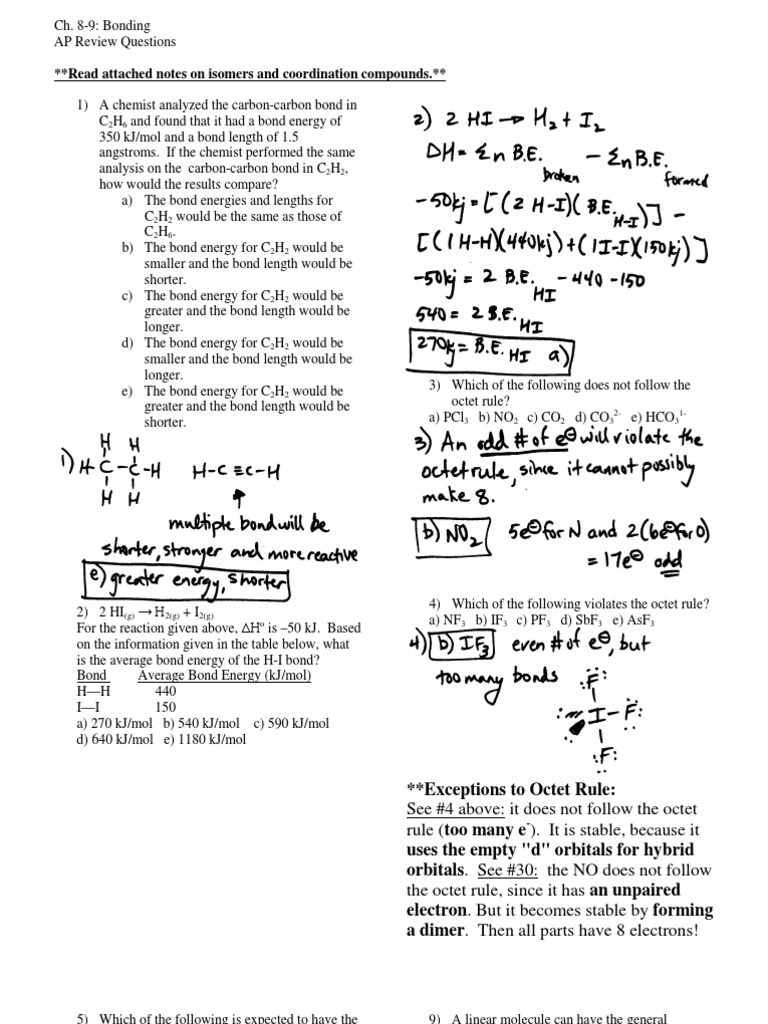 Ch. 8-9: Bonding
AP Review Questions
**Read attached notes on isomers and coordination compounds.**
1) A chemist analyzed the carbon-carbon bond in
C₂H₆ and found that it had a bond energy of
350 kJ/mol and a bond length of 1.5
angstroms. If the chemist performed the same
analysis on the carbon-carbon bond in C₂H₂,
how would the results compare?
a) The bond energies and lengths for
C₂H₂ would be the same as those of
C₂H₆.
b) The bond energy for C₂H₂ would be
smaller and the bond length would be
shorter.
c) The bond energy for C₂H₂ would be
greater and the bond length would be
longer.
d) The bond energy for C₂H₂ would be
smaller and the bond length would be
longer.
e) The bond energy for C₂H₂ would be
greater and the bond length would be
shorter.
H H
1) H-C-C-H H-C≡C-H
H H
multiple bond will be
shorter, stronger and more reactive
e) greater energy, shorter
2) 2 HI(g) → H₂(g) + I₂(g)
For the reaction given above, ΔHº is –50 kJ. Based
on the information given in the table below, what
is the average bond energy of the H-I bond?
Bond Average Bond Energy (kJ/mol)
H—H 440
I—I 150
a) 270 kJ/mol b) 540 kJ/mol c) 590 kJ/mol
d) 640 kJ/mol e) 1180 kJ/mol
2) 2 HI → H₂ + I₂
DH = Σn B.E. - Σn B.E.
broken formed
-50kj = [(2 H-I)(B.E. H-I)] -
[(1 H-H)(440kj)+(1 I-I)(150kj)]
-50kj = 2 B.E. HI -440 -150
540 = 2 B.E. HI
270kj = B.E. HI a)
3) Which of the following does not follow the
octet rule?
a) PCl₃ b) NO₂ c) CO₂ d) CO₃²⁻ e) HCO₃¹⁻
3) An odd # of e⊖ will violate the
octet rule, since it cannot possibly
make 8.
b) NO₂ 5e⊖ for N and 2(6e⊖ for O)
= 17e⊖ odd
4) Which of the following violates the octet rule?
a) NF₃ b) IF₃ c) PF₃ d) SbF₃ e) AsF₃
4) b) IF₃ even # of e⊖, but
too many bonds
F
I-F
F
**Exceptions to Octet Rule:
See #4 above: it does not follow the octet
rule (too many e⁻). It is stable, because it
uses the empty "d" orbitals for hybrid
orbitals. See #30: the NO does not follow
the octet rule, since it has an unpaired
electron. But it becomes stable by forming
a dimer. Then all parts have 8 electrons!
5) Which of the following is expected to have the
9) A linear molecule can have the general